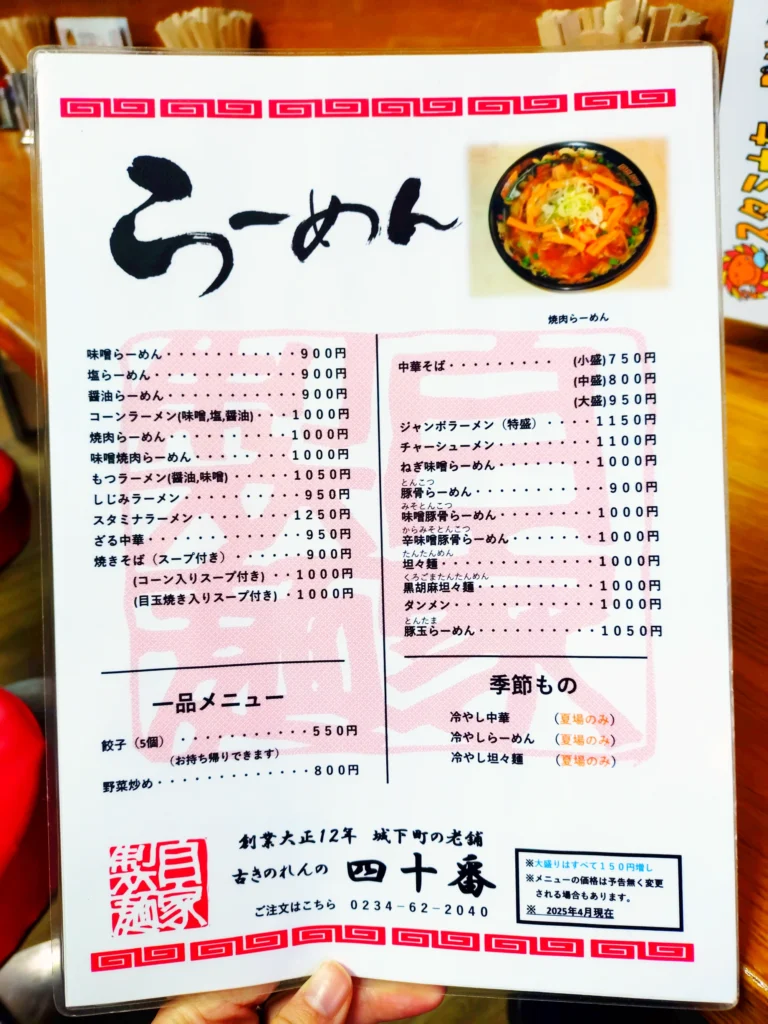 らーめん
焼肉らーめん
味噌らーめん・・・・・・・・・・・900円
塩らーめん・・・・・・・・・・・・900円
醤油らーめん・・・・・・・・・・・900円
コーンラーメン(味噌,塩,醤油)・・・1000円
焼肉らーめん・・・・・・・・・・・1000円
味噌焼肉らーめん・・・・・・・・・1000円
もつラーメン(醤油,味噌)・・・・・・1050円
しじみラーメン・・・・・・・・・・950円
スタミナラーメン・・・・・・・・・1250円
ざる中華・・・・・・・・・・・・・950円
焼きそば(スープ付き)・・・・・・・900円
(コーン入りスープ付き)・・1000円
(目玉焼き入りスープ付き)・1000円
中華そば・・・・・・・・・(小盛)750円
(中盛)800円
(大盛)950円
ジャンボラーメン(特盛)・・・・1150円
チャーシューメン・・・・・・・・1100円
ねぎ味噌らーめん・・・・・・・・1000円
とんこつ
豚骨らーめん・・・・・・・・・・900円
みそとんこつ
味噌豚骨らーめん・・・・・・・・1000円
からみそとんこつ
辛味噌豚骨らーめん・・・・・・・1000円
たんたんめん
坦々麺・・・・・・・・・・・・・1000円
くろごまたんたんめん
黒胡麻坦々麺・・・・・・・・・・1000円
タンメン・・・・・・・・・・・・1000円
とんたま
豚玉らーめん・・・・・・・・・・1050円
一品メニュー
餃子(5個)・・・・・・・・・・・550円
(お持ち帰りできます)
野菜炒め・・・・・・・・・・・・・800円
季節もの
冷やし中華 (夏場のみ)
冷やしらーめん (夏場のみ)
冷やし坦々麺 (夏場のみ)
自家製麺
創業大正12年 城下町の老舗
古きのれんの 四十番
ご注文はこちら 0234-62-2040
※大盛りはすべて150円増し
※メニューの価格は予告無く変更
される場合もあります。
※ 2025年4月現在
スタミナ